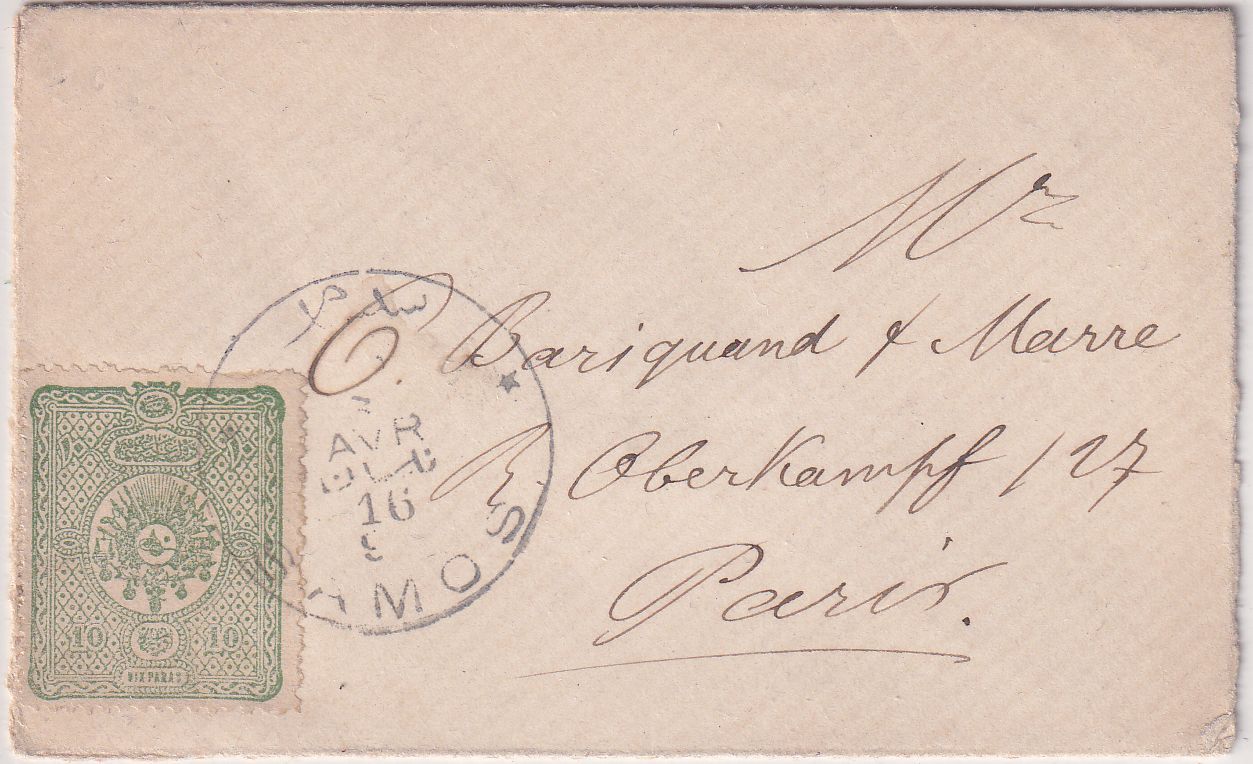 Mr
C. Bariquand & Marre
R. Oberkampf 127
Paris.
AVR
16
SAMOS
10 10
DIX PARAS